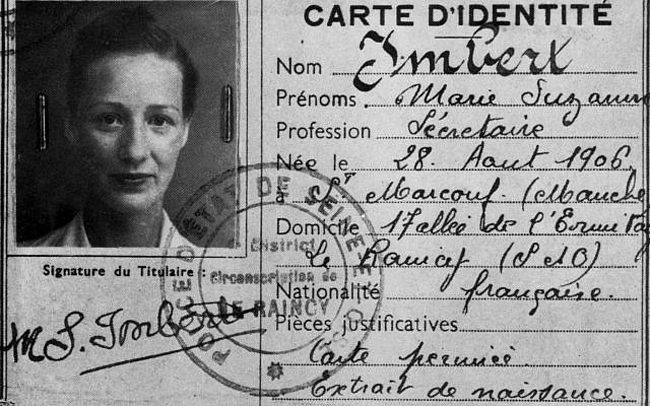 CARTE D'IDENTITÉ
Nom Imbert
Prénoms Marie Suzanne
Profession Sécretaire
Née le 28. Aout 1906.
à St Marcouf. (Manche
Domicile 17 allée de l'Ermitag
Le Raincy (S & O)
Nationalité française.
Pièces justificatives
Carte permise.
Extrait de naissance.
Signature du Titulaire :
M S. Imbert
POLICE D'ÉTAT DE SEINE & O
District
Circonscription de
LE RAINCY